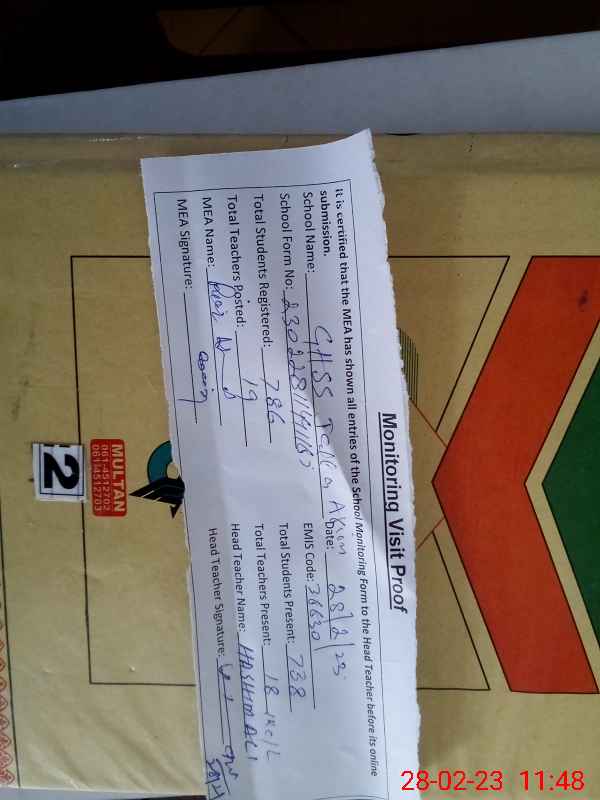 Monitoring Visit Proof
It is certified that the MEA has shown all entries of the School Monitoring Form to the Head Teacher before its online
submission.
School Name: GHSS Date: 28/2/23
School Form No: EMIS Code:
Total Students Registered: 786 Total Students Present: 738
Total Teachers Posted: 19 Total Teachers Present: 18
MEA Name: Head Teacher Name: HASHIM ALI
MEA Signature: Head Teacher Signature:
MULTAN
061-4512702
061-4512703
2
28-02-23 11:48